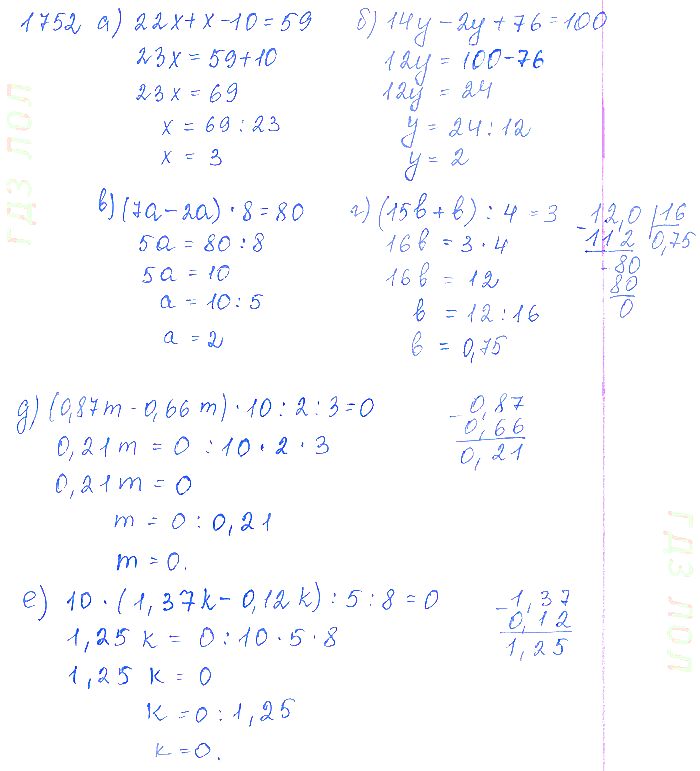 1752 а) 22x+x-10=59
23x=59+10
23x=69
x=69:23
x=3
б) 14y-2y+76=100
12y=100-76
12y=24
y=24:12
y=2
в) (7a-2a)·8=80
5a=80:8
5a=10
a=10:5
a=2
г) (15b+b):4=3
16b=3·4
16b=12
b=12:16
b=0,75
-12,0|16
112 0,75
-80
80
0
д) (0,87m-0,66m)·10:2:3=0
0,21m=0:10·2·3
0,21m=0
m=0:0,21
m=0.
-0,87
0,66
0,21
е) 10·(1,37k-0,12k):5:8=0
1,25k=0:10·5·8
1,25k=0
k=0:1,25
k=0.
-1,37
0,12
1,25
гдз лол
гдз лол